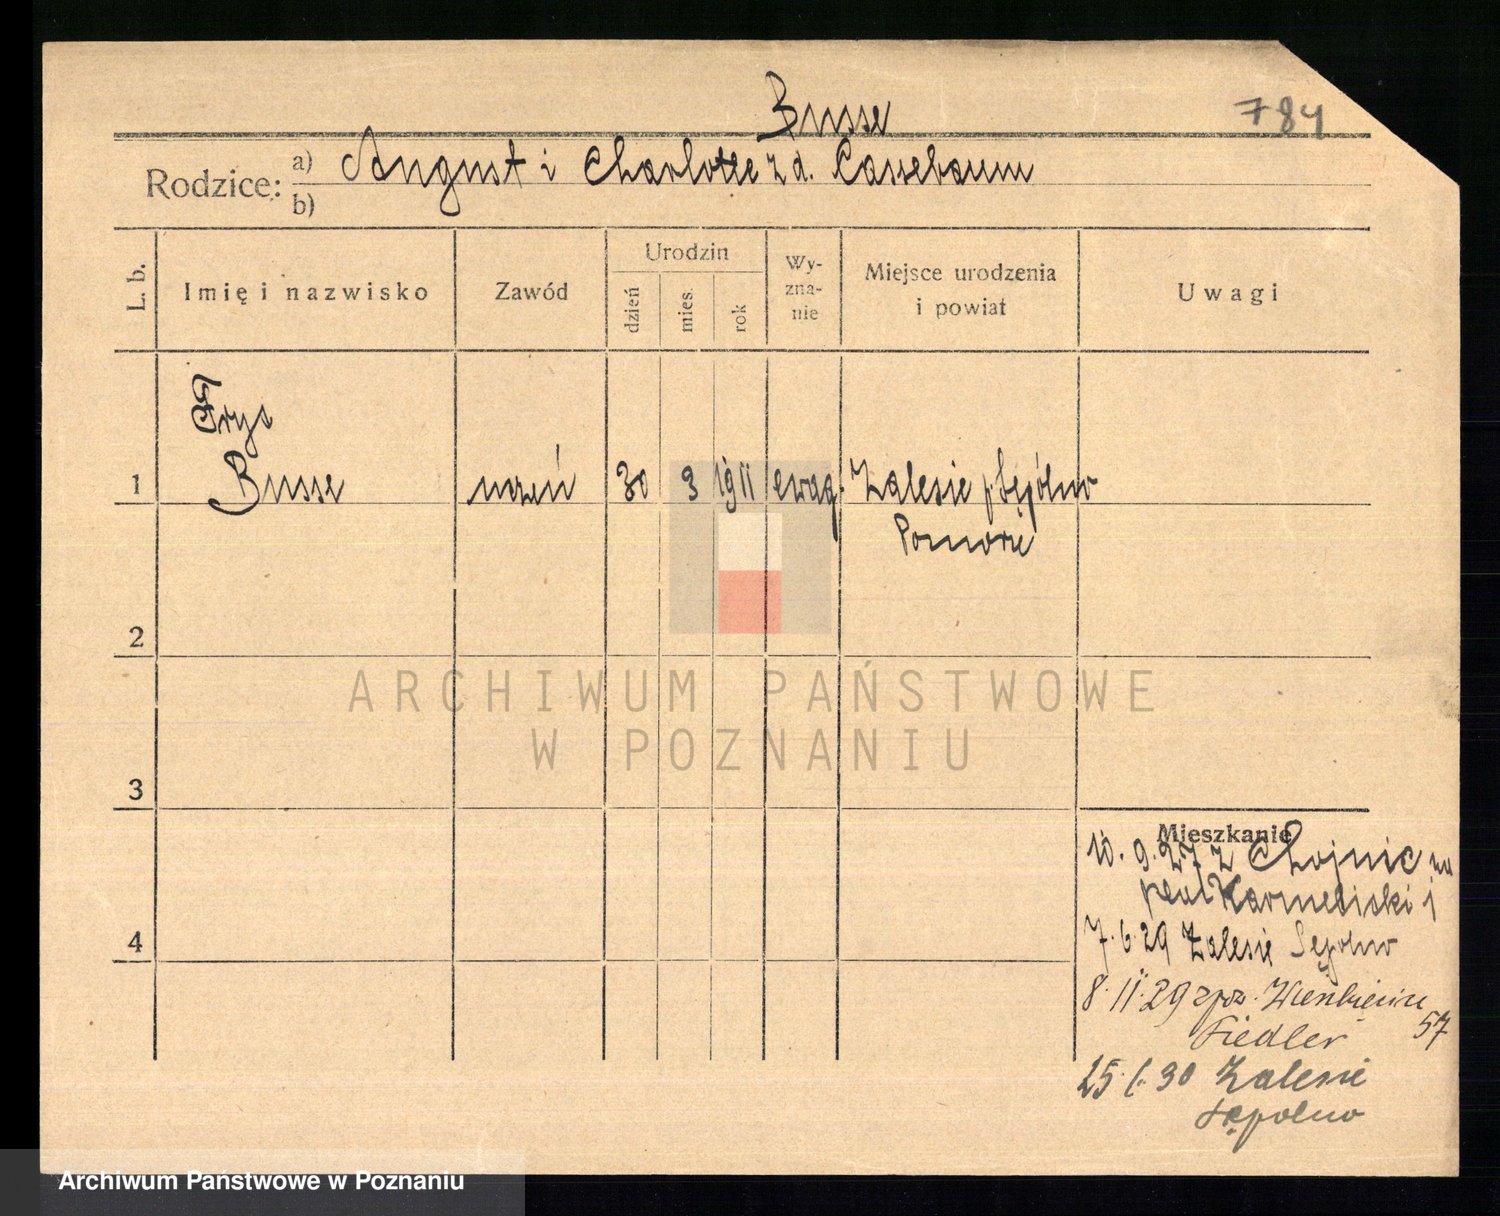 Busse
784
Rodzice: a) August i Charlotte z d. Cassebaum
b)
L. b. Imię i nazwisko Zawód Urodzin dzień mies. rok Wy-zna-nie Miejsce urodzenia i powiat Uwagi
Fryc
1 Busse uczeń 30 3 1911 ewag. Zalesie p. Sępólno
Pomorze
2
ARCHIWUM PAŃSTWOWE
W POZNANIU
3
Mieszkanie
10. 9. 27 z Chojnic na
Karmelicki 1
7. 6. 29 Zalesie Sępolno
8. 11. 29 zpow.
Fiedler 57
4
25. 6. 30 Zalesie
Sępolno
Archiwum Państwowe w Poznaniu